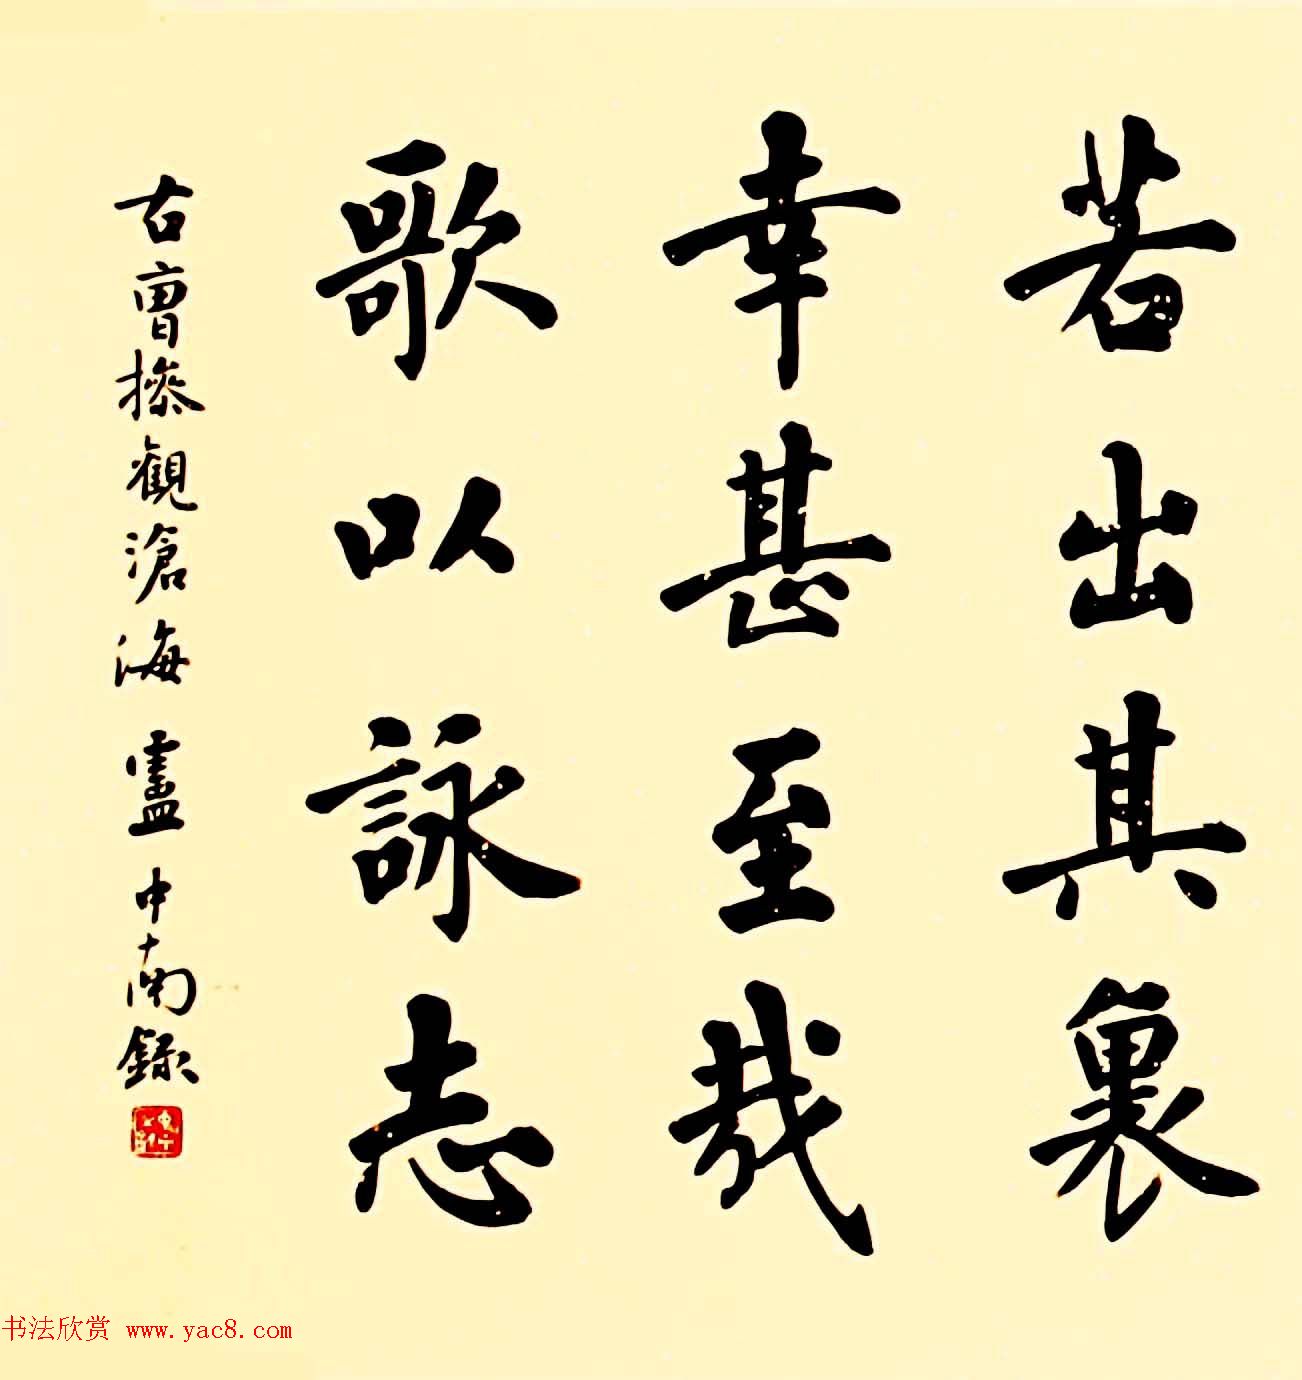 若出其裏
幸甚至哉
歌以詠志
右曹操觀滄海 盧中南録
书法欣赏 www.yac8.com